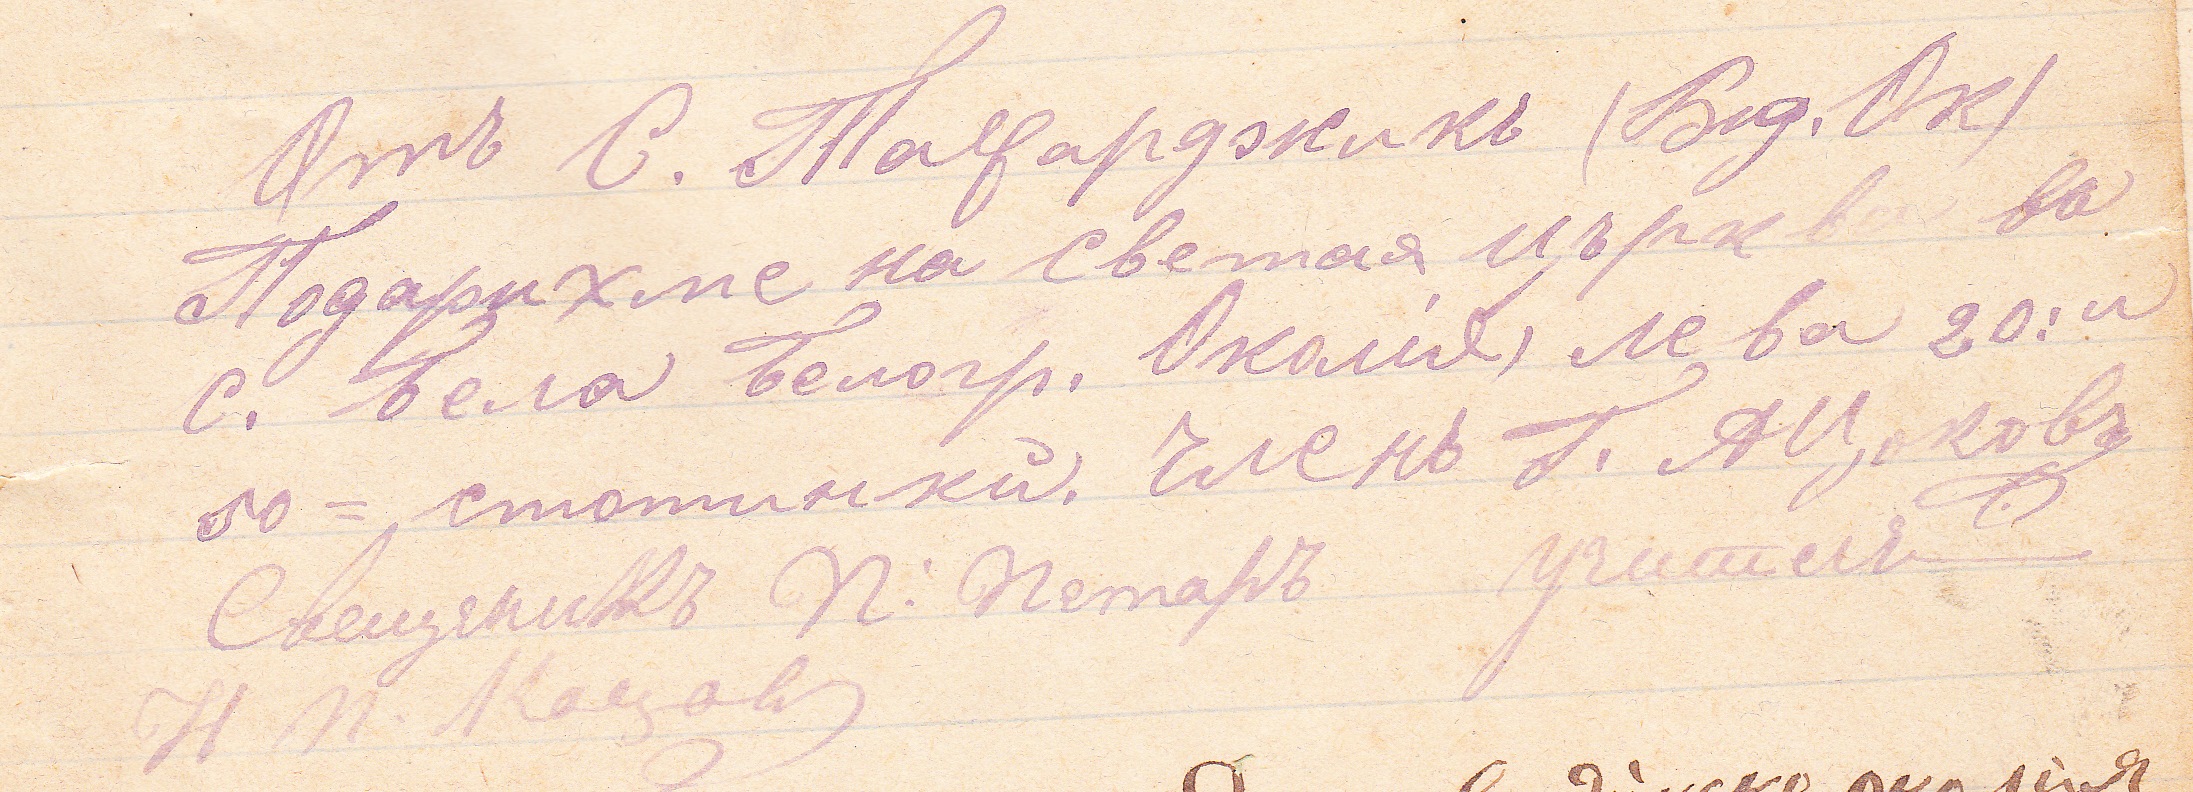 Отъ С. Тафарджикъ (Вид. Ок)
Подарихме на светая църква во
с. Бела Белогр. Околія, лева 20: и
50 = стотинкй. Членъ Т. А Цоковъ
Свещеникъ П: Петаръ учителъ
Н п. Коцов